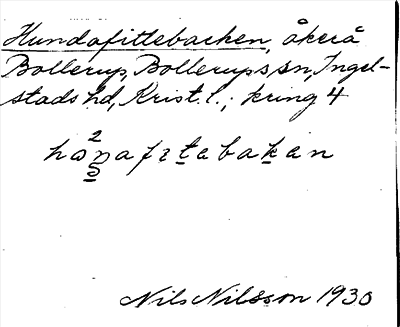 Hundafittebacken, åkerå
Bollerup, Bollerups sn, Ingel-
stads hd, Krist. l.; kring 4
Nils Nilsson 1930